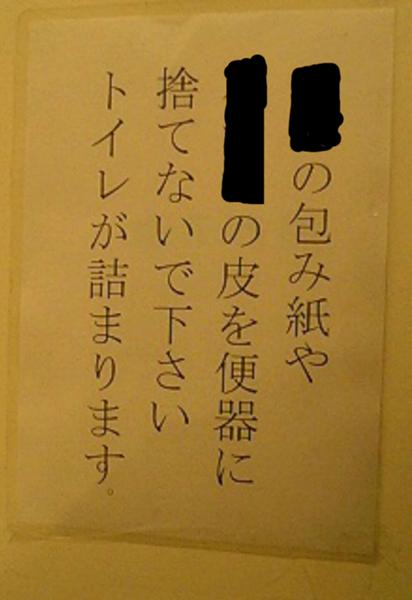 の包み紙や
の皮を便器に
捨てないで下さい
トイレが詰まります。